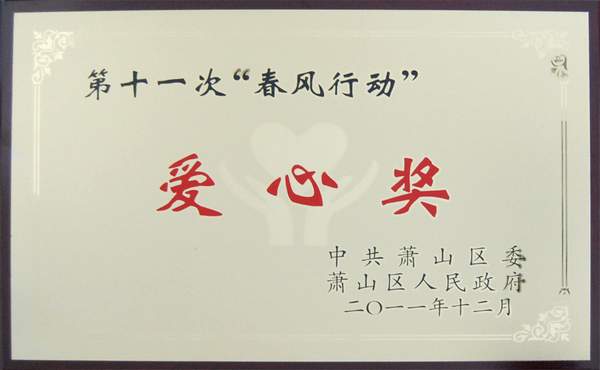 第十一次“春风行动”
爱心奖
中共萧山区委
萧山区人民政府
二〇一一年十二月